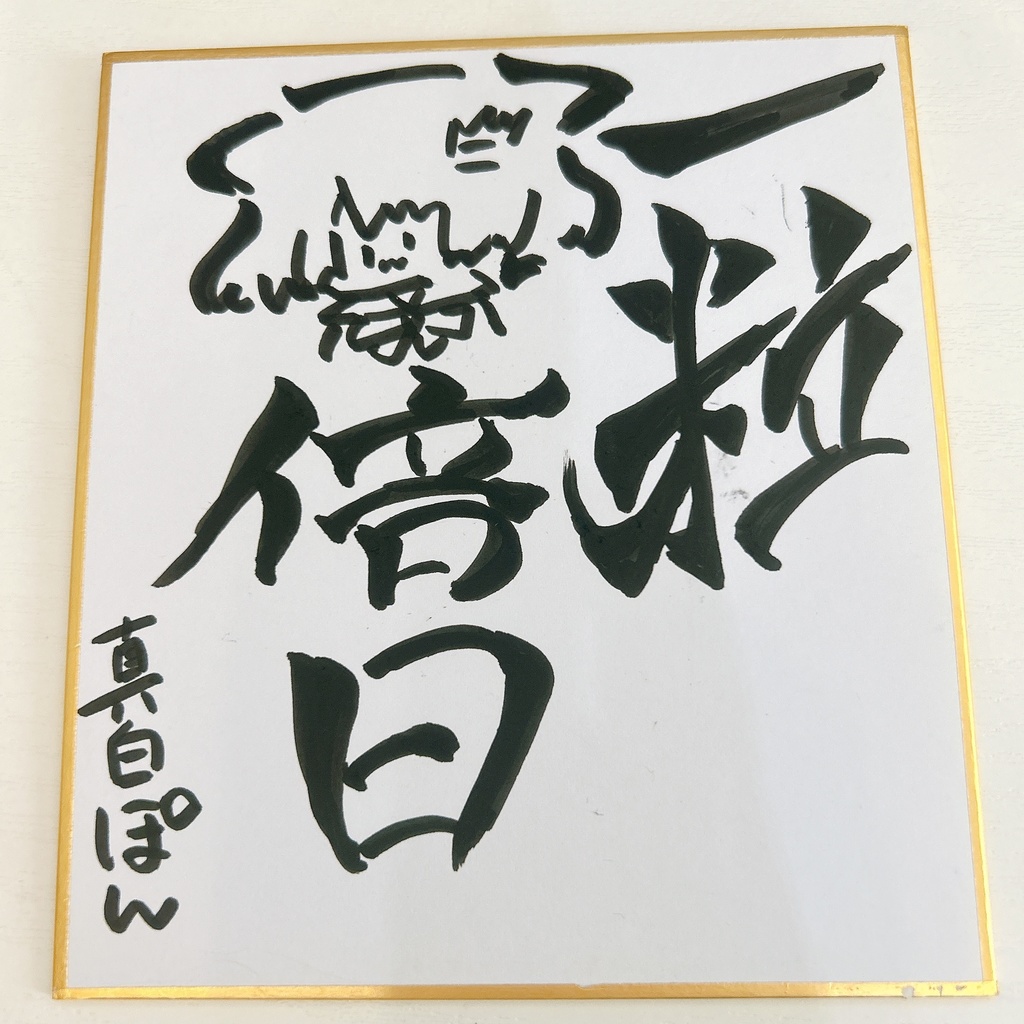 一粒
倍日
真白ぽん